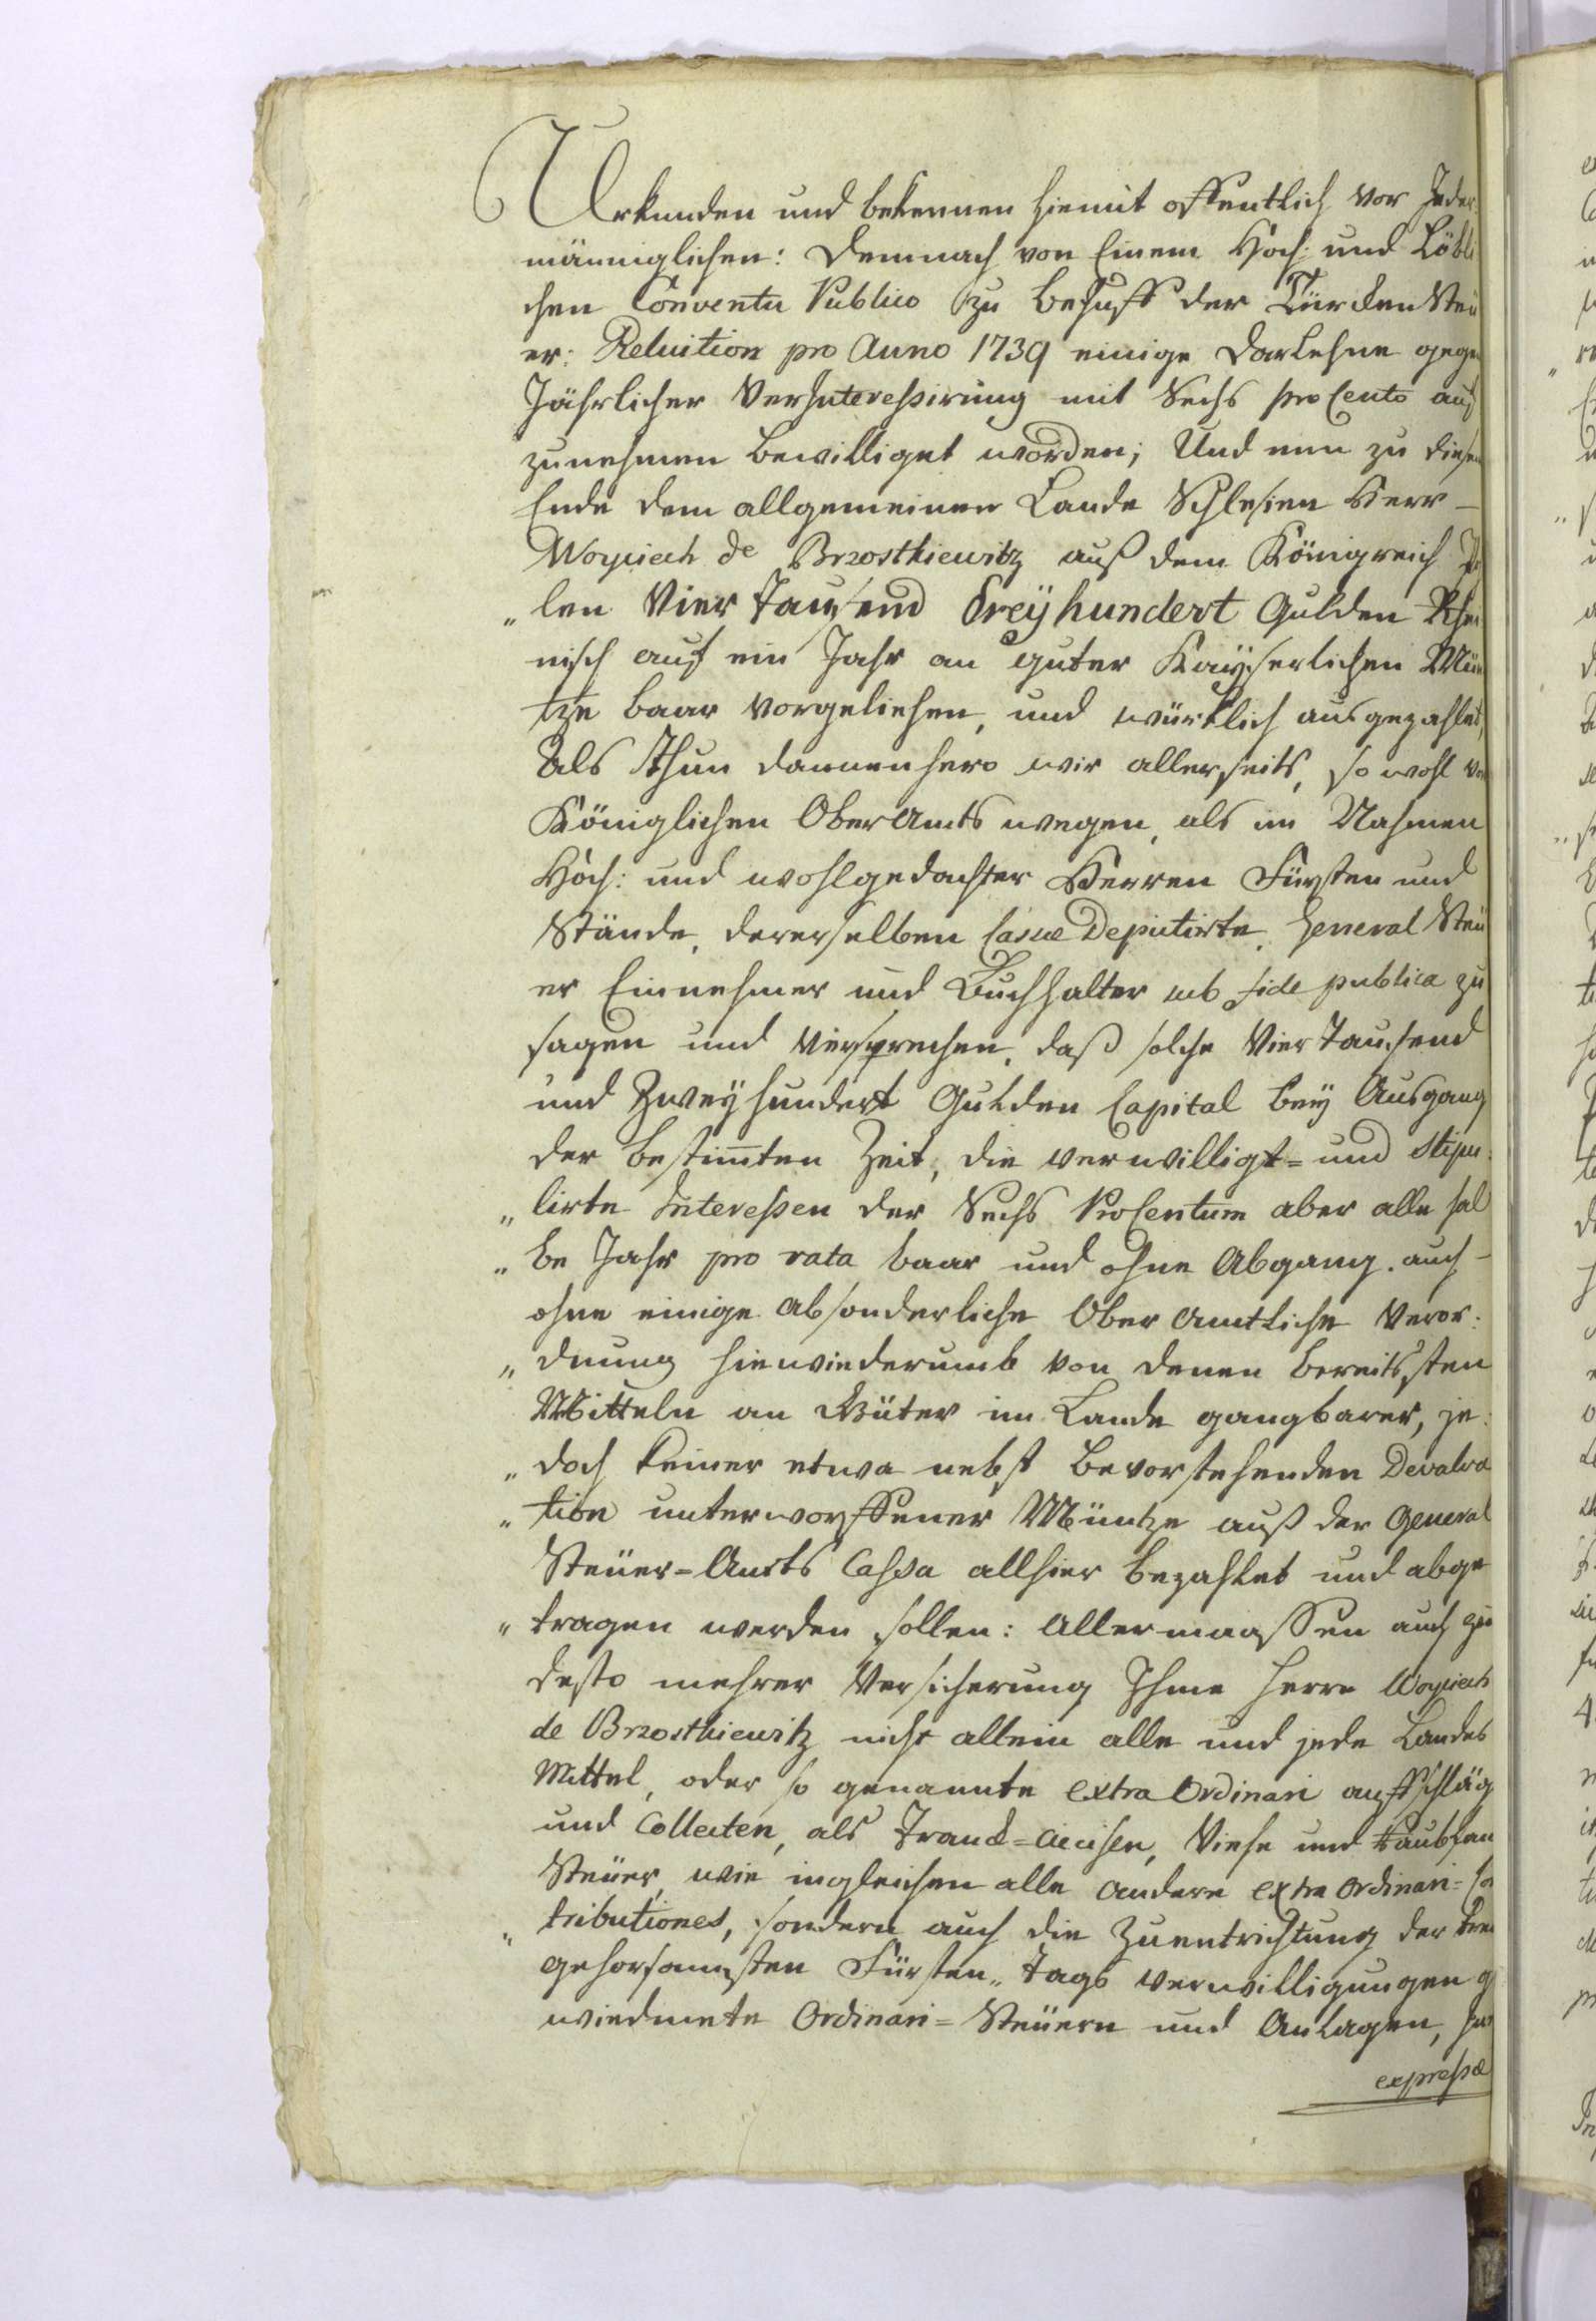 Urkunden und bekennen hiemit offentlich vor Jeder:
männiglichen: Demnach von Einem Hoch: und Löbli
chen Conventu Publico zu Behuff der Türcken Steü
er: Reluition pro Anno 1739 einige Darlehne gegen
Jährlicher VerInteressirung mit Sechs pro Cento auf
zunehmen bewilliget worden; Und nun zu diesen
Ende dem allgemeinen Lande Schlesien Herr -
Woyciech de Brzosthiewitz auß dem Königreich Po
„ len Vier Tausend dreyhundert Gulden Rhei
nisch auf ein Jahr an guter Kayserlichen Mün
tze baar vorgeliehen, und würklich ausgezahlet,
Als Thun dannenhero wir allerseits, so wohl von
Königlichen OberAmts wegen, als im Nahmen
Hoch: und wohlgedachter Herren Fürsten und
Stände, dererselben Cassae Deputirte, General Steü
er Einnehmer und Buchhalter sub fide publica zu
sagen und versprechen, daß solche Vier Tausend
und Zweyhundert Gulden Capital bey Ausgang
der bestim̄ten Zeit, die verwilligt= und stipu:
„ lirte Interessen der Sechs ProCentum aber alle hal
„ be Jahr pro rata baar und ohne Abgang. auch -
ohne einige absonderliche Ober Amtliche Veror:
„ dnung hinwiederumb von denen bereitsten
Mitteln an Güter im Lande gangbarer, je:
„ doch keiner etwa nebst bevorstehenden Devalva
„ tion unterworffener Müntze auß der General
Steüer=Amts Cassa allhier bezahlet und abge
„ tragen werden sollen: Allermaassen auch zu
desto mehrer Versicherung Ihme Herrn Woyciech
de Brzosthiewitz nicht allein alle und jede Landes
Mittel, oder so genannte extra Ordinari auffschläg
und Collecten, als Tranck=Accisen, Viehe und
Steüer, wie ingleichen alle andere extra ordinari= Co
„ tributiones, sondern auch die Zuentrichtung der treu
gehorsamsten Fürsten„ Tags verwilligungen g
wiedmete Ordinari= Steüern und Anlagen,
expressè